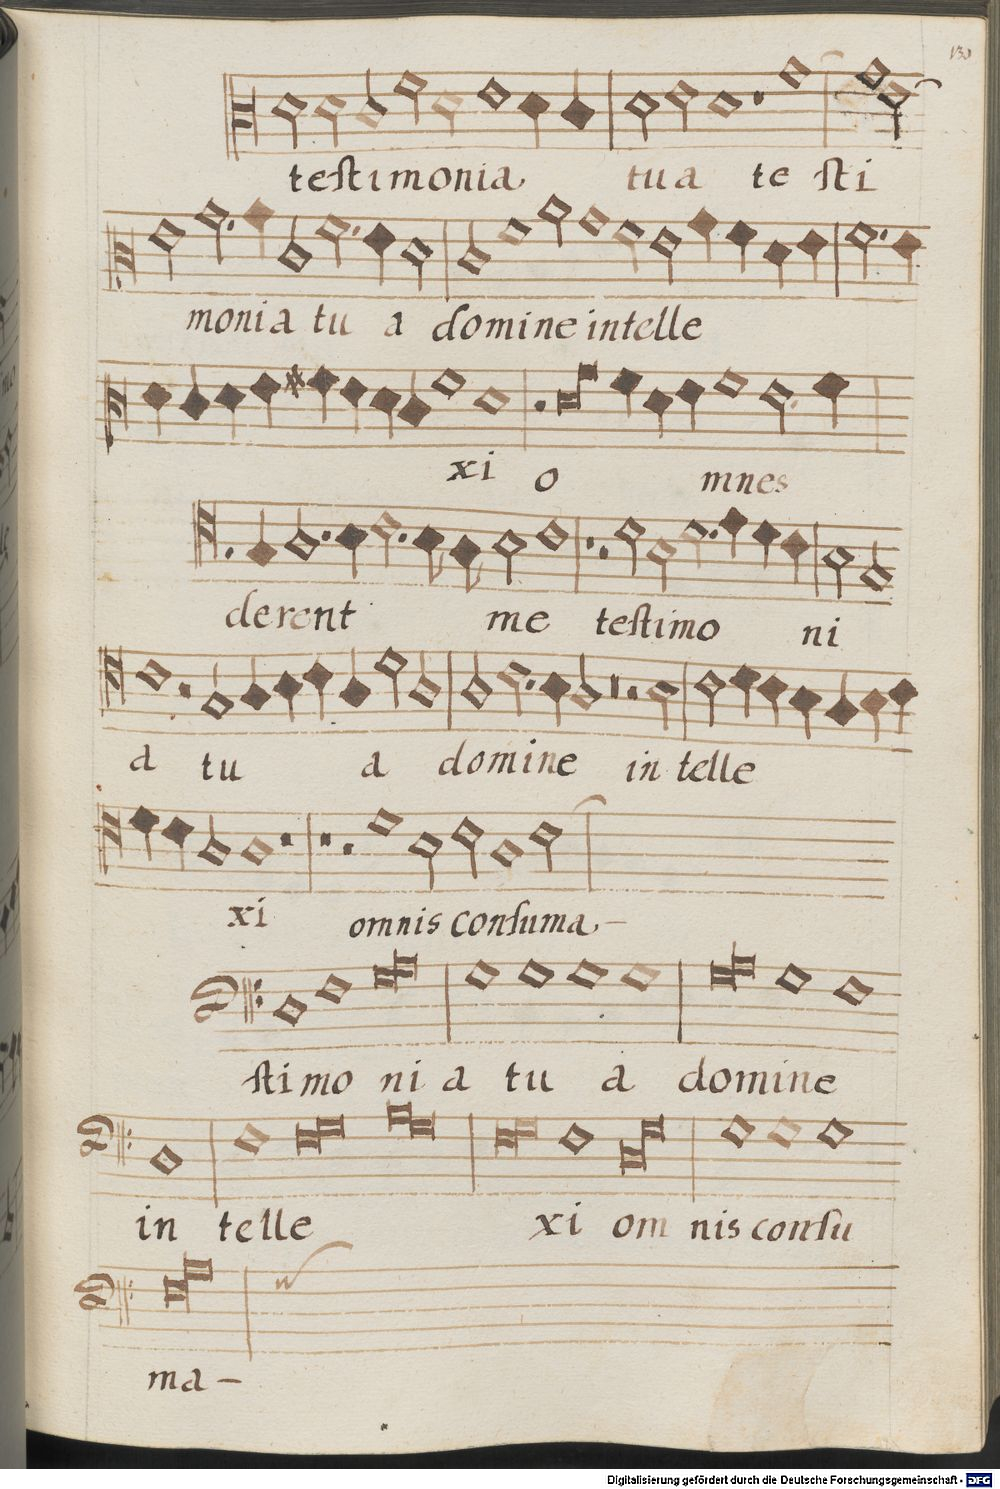 130
testimonia tua te sti
monia tu a domine intelle
xi o mnes
derent me testimo ni
a tu a domine in telle
xi omnis consuma-
stimo ni a tu a domine
in telle xi om nis consu
ma-
Digitalisierung gefördert durch die Deutsche Forschungsgemeinschaft - DFG